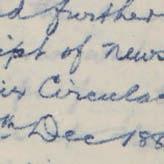 d further
ipt of news
ir Circula
th Dec 188